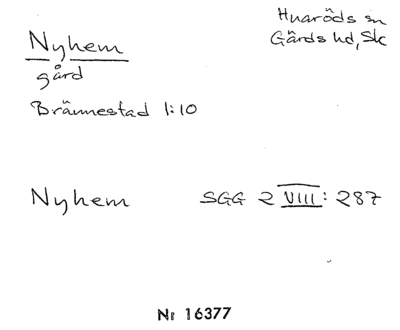 Nyhem
gård
Brännestad 1:10
Huaröds sn
Gärds hd, Sk
Nyhem SGG 2 VIII: 287
Nr 16377